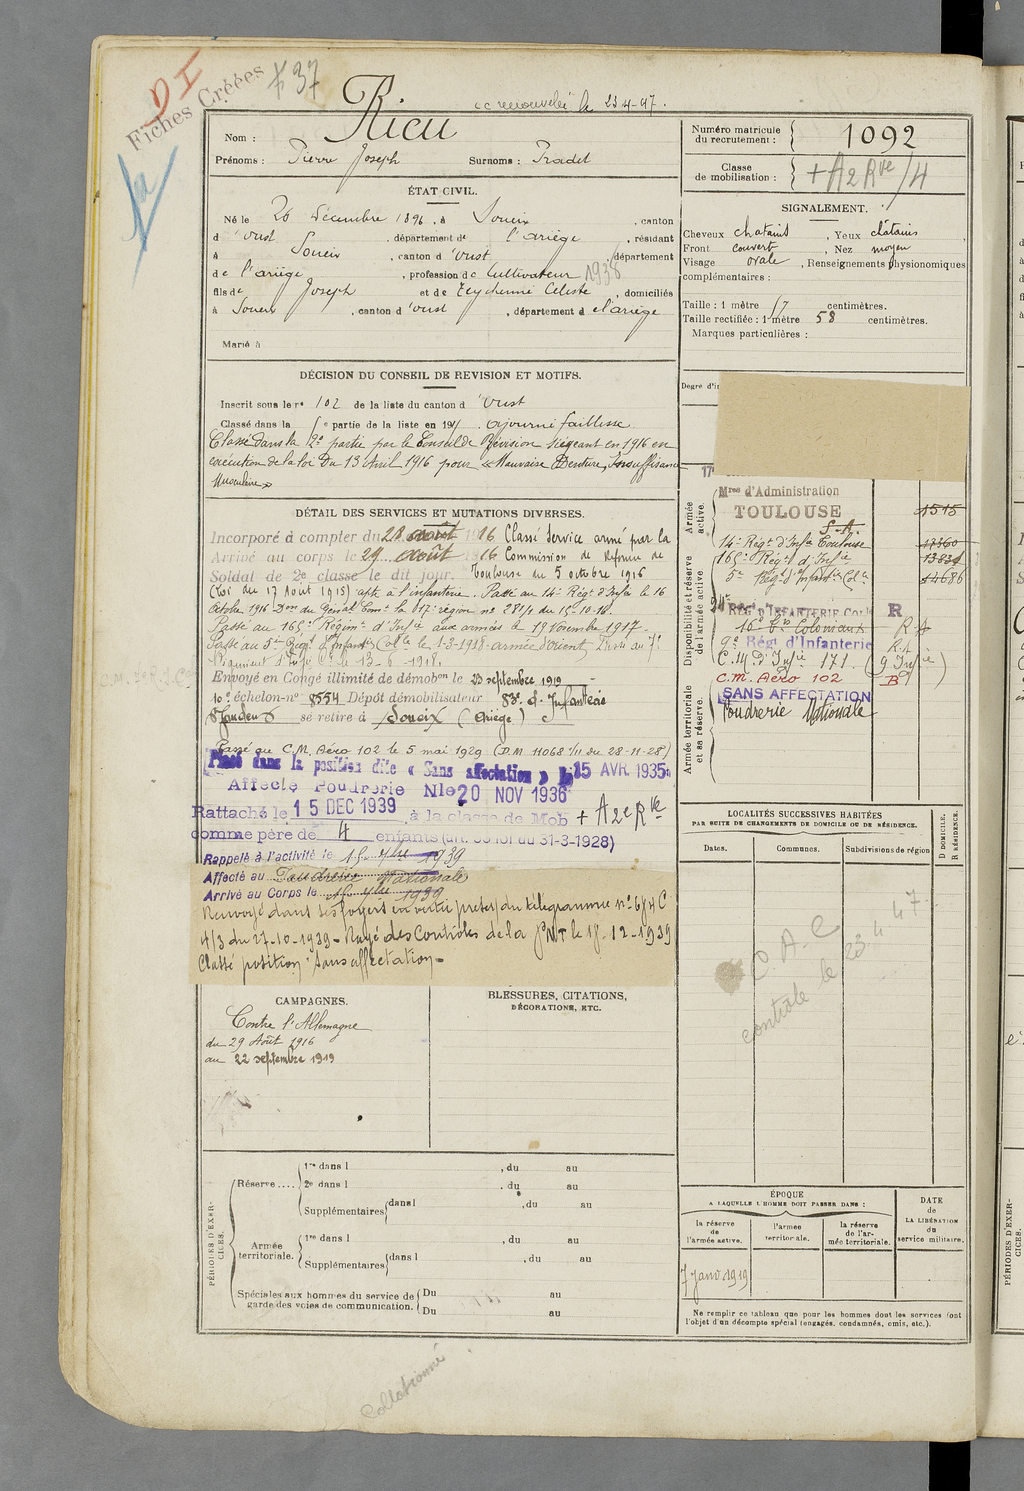 DI
Fiches Créées
37
cc renouvelé le 23-4-47.
Nom : Rieu
Prénoms : Pierre Joseph Surnoms : Pradel
Numéro matricule du recrutement : 1092
Classe de mobilisation : + A2 Rve /4
ÉTAT CIVIL.
Né le 26 décembre 1896, à Soueix, canton
d'Oust, département de l'ariège, résidant
à Soueix, canton d'Oust, département
de l'ariège, profession de Cultivateur 1938
fils de Joseph et de Teychenné Celeste, domiciliés
à Soueix, canton d'oust, département d el'ariège
Marié à
SIGNALEMENT.
Cheveux chatains, Yeux châtains,
Front couvert, Nez moyen
Visage ovale, Renseignements physionomiques
complémentaires :
Taille : 1 mètre 57 centimètres.
Taille rectifiée : 1 mètre 58 centimètres.
Marques particulières :
Degré d'in
DÉCISION DU CONSEIL DE REVISION ET MOTIFS.
Inscrit sous le no 102 de la liste du canton d'Oust
Classé dans la 5e partie de la liste en 191 . ajourné faiblesse.
Classé dans la 2e partie par le Conseil de Révision siégeant en 1916 en
exécution de la loi du 13 Avril 1916 pour « Mauvaise Denture, Insuffisance
Musculaire »
DÉTAIL DES SERVICES ET MUTATIONS DIVERSES.
Incorporé à compter du 28 août 1916 Classé Service armé par la
Arrivé au corps le 29 août 1916 Commission de Réforme de
Soldat de 2e classe le dit jour. Toulouse du 5 octobre 1916
(Loi du 17 Aout 1915) apte à l'infanterie. Passé au 14e Régt d'Infie le 16
Octobre 1916 Don du Général Comt la 17e région no 281/1 du 15-10-16.
Passé au 165e Régimt d'Infie aux armées le 19 Novembre 1917.
Passé au 5me Régt d'Infantie Colle le 1-3-1918 - armée d'orient,
Régiment d'Infie Cle le 13-6-1918.
Envoyé en Congé illimité de démobon le 23 septembre 1919
10e échelon - no 8554 Dépôt démobilisateur 83e d'Infanterie
St Gaudens se retire à Soueix (Ariège)
Passé au C.M. Aéro 102 le 5 mai 1929 (D.M. 11068 1/11 du 28-11-28)
Placé dans la position dite « Sans affectation » le 15 AVR. 1935
Affecté Poudrerie Nle 20 NOV 1936
Rattaché le 15 DEC 1939 à la classe de Mob + A2e Rve
comme père de 4 enfants (art. 58 loi du 31-3-1928)
Rappelé à l'activité le 15 7bre 1939
Affecté au Poudrerie Nationale
Arrivé au Corps le 15 7bre 1939
Renvoyé dans ses foyers en vertu prescr du télégramme no 6/4 C
4/3 du 27-10-1939 - Rayé des Contrôles de la PNT le 15-12-1939
Classé position "Sans affectation"
Armée active.
Mres d'Administration
TOULOUSE 1515
S.A.
14e Régt d'Infie Toulouse 17360
Disponibilité et réserve de l'armée active
165e Régt d'Infie 13834
5e Régt d'Infantie Cole 14686
24e RÉGt D'INFANTERIE Cole R
16e Bon Coloniaux
9e Régt d'Infanterie
C.M. d'Infie 171. (9 Infie)
C.M. Aéro 102
Armée territoriale et sa réserve
SANS AFFECTATION
Poudrerie Nationale
LOCALITÉS SUCCESSIVES HABITÉES
PAR SUITE DE CHANGEMENTS DE DOMICILE OU DE RÉSIDENCE.
Dates. Communes. Subdivisions de région
D DOMICILE.
R RÉSIDENCE.
C.A.C
contrôle le 23.4.47.
CAMPAGNES.
Contre l'Allemagne
du 29 Août 1916
au 22 septembre 1919
BLESSURES, CITATIONS,
DÉCORATIONS, ETC.
PÉRIODES D'EXERCICES.
Réserve....
1re dans l , du au
2e dans l , du au
Supplémentaires dans l , du au
Armée territoriale.
1re dans l , du au
Supplémentaires dans l , du au
Spéciales aux hommes du service de garde des voies de communication.
Du au
Du au
ÉPOQUE
A LAQUELLE L'HOMME DOIT PASSER DANS :
la réserve de l'armée active.
l'armée territoriale.
la réserve de l'armée territoriale.
DATE de LA LIBÉRATION du service militaire.
7 janv 1919
Ne remplir ce tableau que pour les hommes dont les services font
l'objet d'un décompte spécial (engagés, condamnés, omis, etc.).
Collationné
PÉRIODES D'EXERCICES.